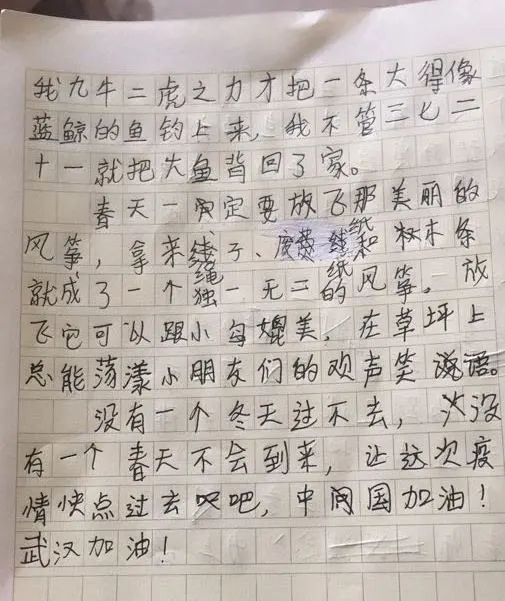 我九牛二虎之力才把一条大得像
蓝鲸的鱼钓上来，我不管三七二
十一就把大鱼背回了家。
春天一定要放飞那美丽的
风筝，拿来线绳子、废纸和树木条
就成了一个独一无二的纸风筝。放
飞它可以跟小鸟媲美，在草坪上
总能荡漾小朋友们的欢声笑语。
没有一个冬天过不去，没
有一个春天不会到来，让这次疫
情快点过去吧，中国加油！
武汉加油！